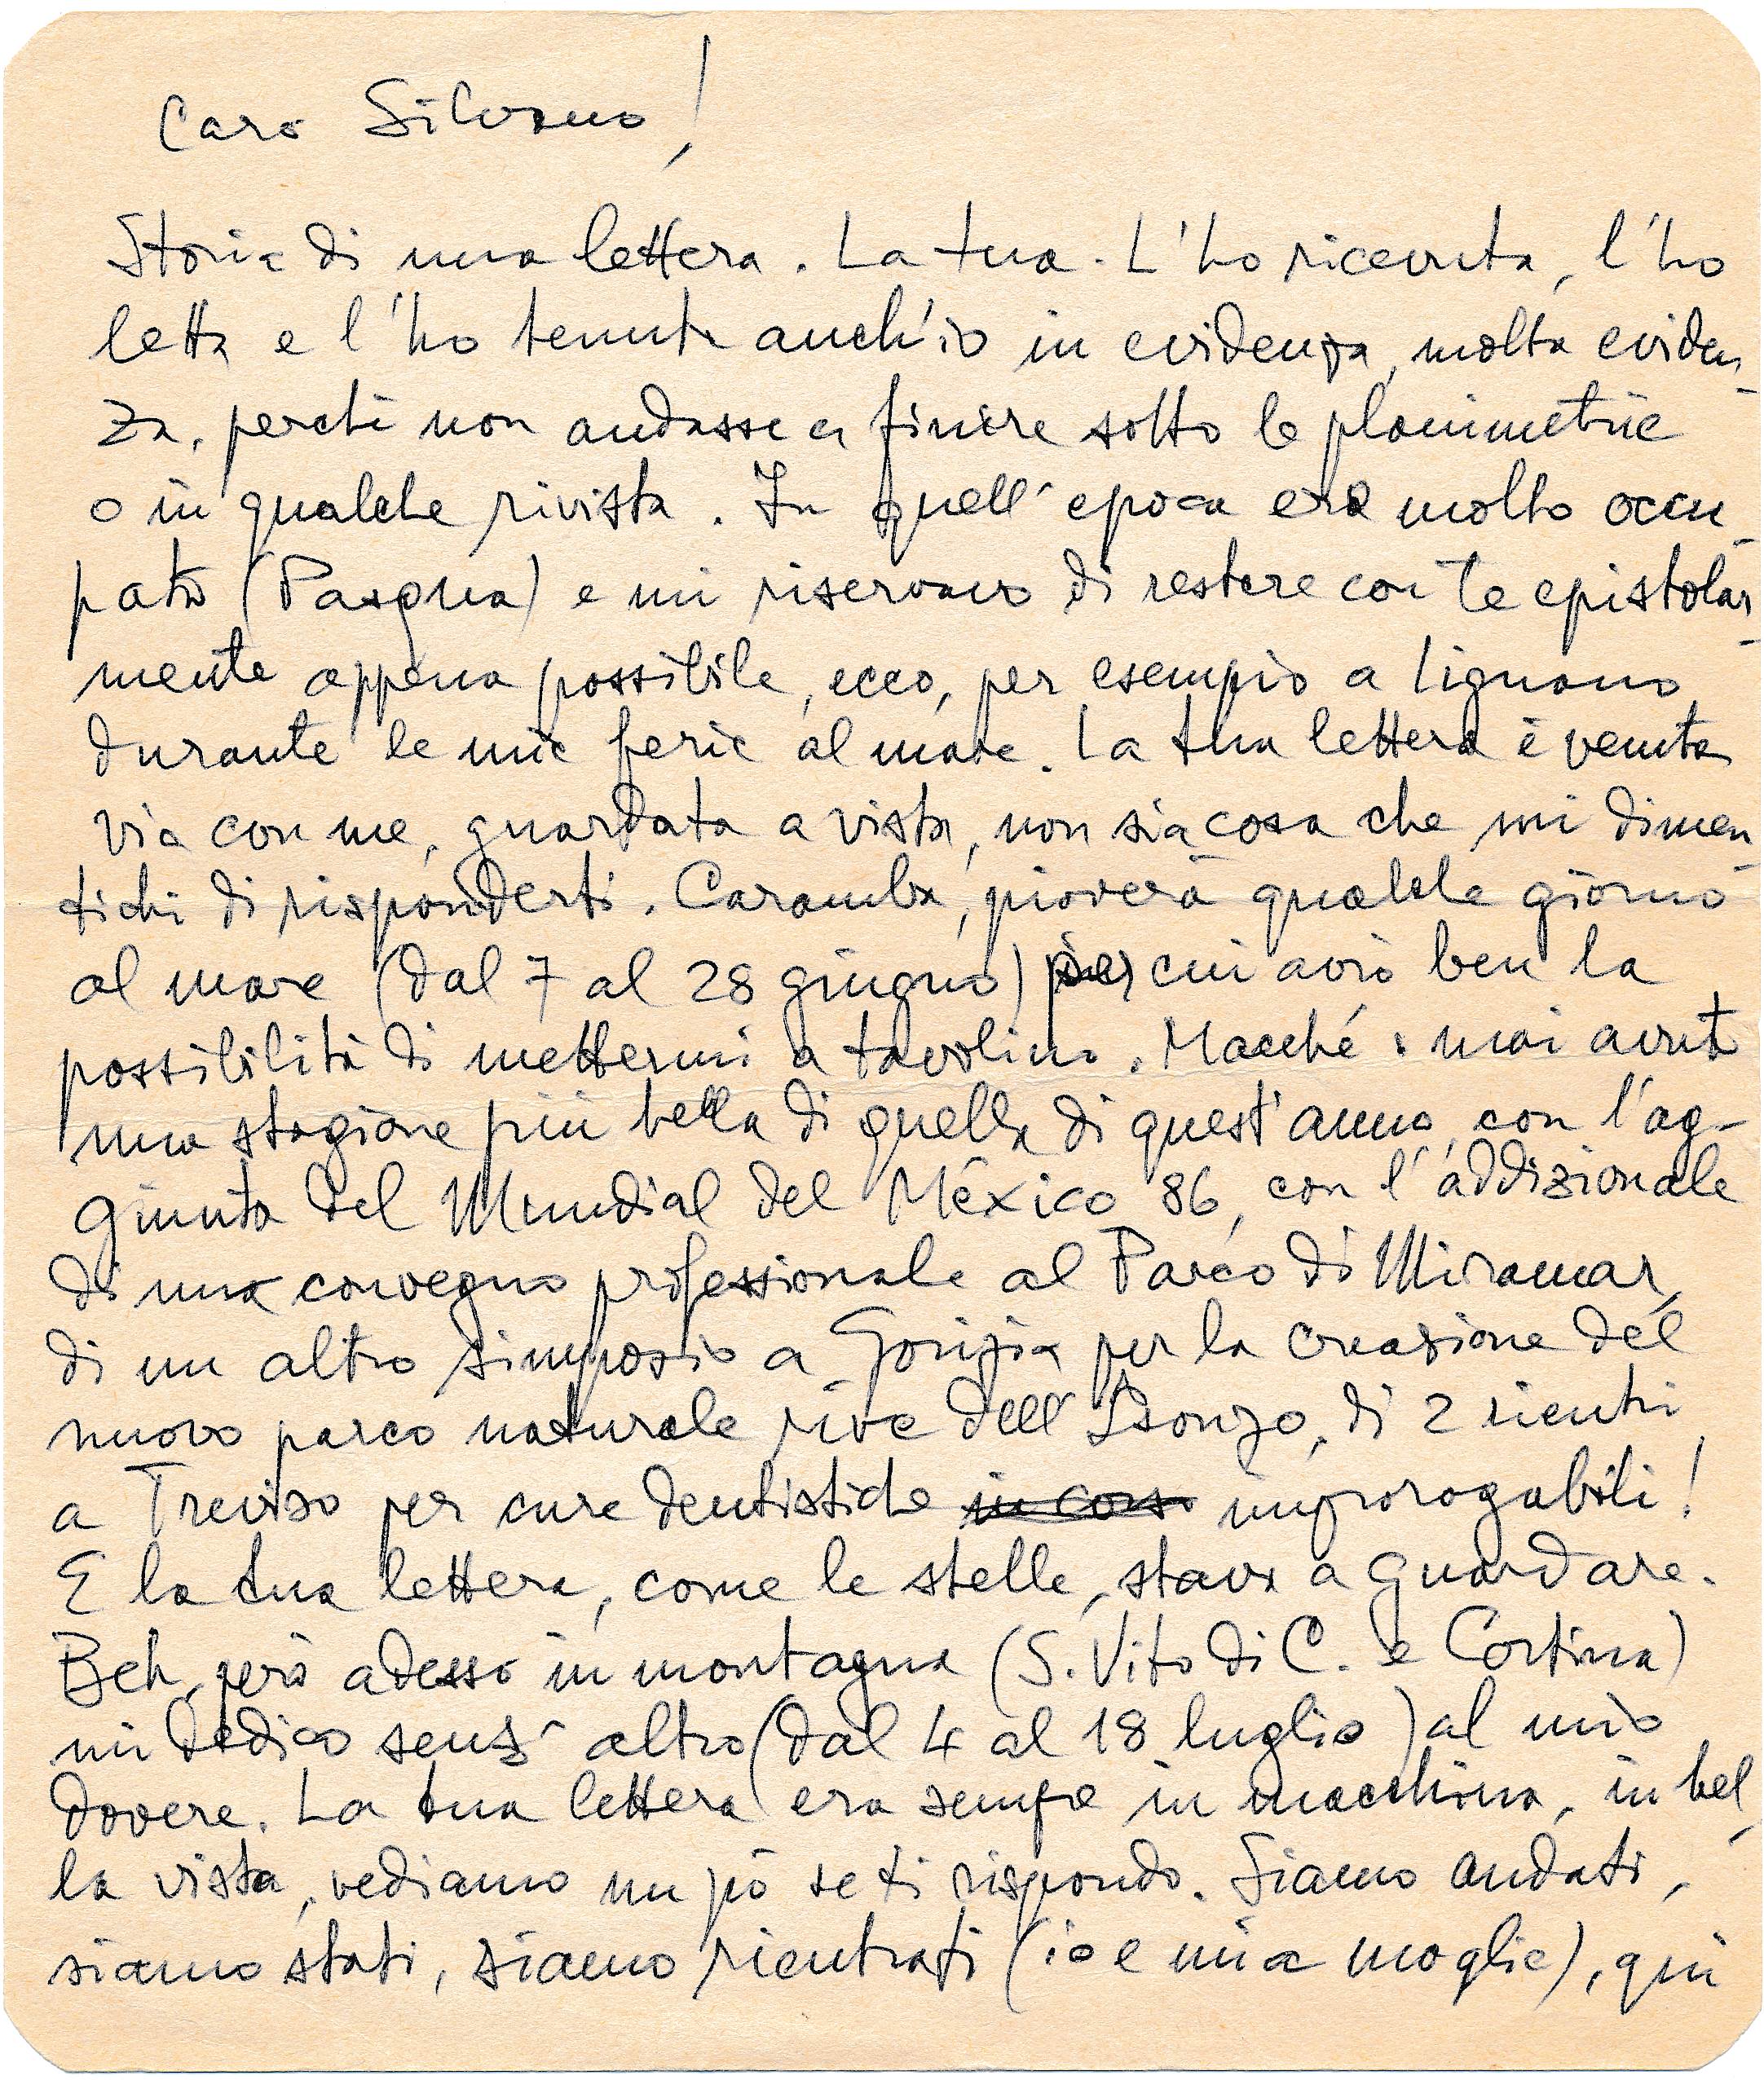 Caro Silvano!
Storia di una lettera. La tua. L'ho ricevuta, l'ho
letta e l'ho tenuta anch'io in evidenza, molta eviden_
za, perchè non andasse a finire sotto le planimetrie
o in qualche rivista. In quell'epoca ero molto occu_
pato (Pasqua) e mi riservavo di restare con te epistolar_
mente appena possibile, ecco, per esempio a Lignano
durante le mie ferie al mare. La tua lettera è venuta
via con me, guardata a vista, non sia cosa che mi dimen_
tichi di risponderti. Caramba, pioverà qualche giorno
al mare (dal 7 al 28 giugno) per cui avrò ben la
possibilità di mettermi a tavolino. Macché: mai avuto
una stagione più bella di quella di quest'anno, con l'ag-
giunta del Mundial del México 86, con l'addizionale
di un convegno professionale al Parco di Miramar,
di un altro simposio a Gorizia per la creazione del
nuovo parco naturale rive dell'Isonzo, di 2 rientri
a Treviso per cure dentistiche in corso improrogabili!
E la tua lettera, come le stelle, stava a guardare.
Beh, però adesso in montagna (S. Vito di C. e Cortina)
mi dedico senz'altro (dal 4 al 18 luglio) al mio
dovere. La tua lettera era sempre in macchina, in bel_
la vista, vediamo un pò se ti rispondo. Siamo andati,
siamo stati, siamo rientrati (io e mia moglie), qui